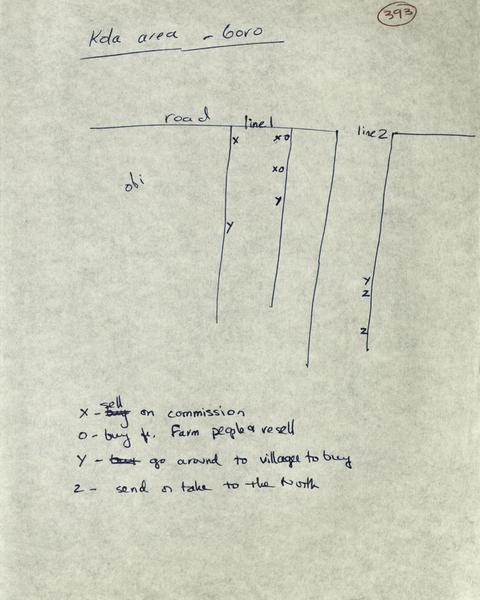 393
Kda area - Goro
road line 1 line 2
x xo
obi xo
y
y
y
z
z
sell
x - buy on commission
o - buy fr. farm people & resell
y - go around to villages to buy
z - send or take to the North